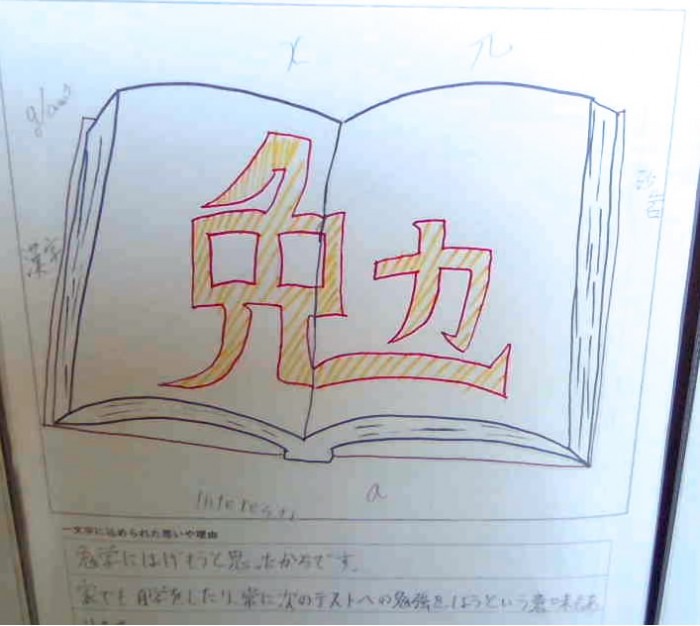 x
π
glass
漢字
勉
interest
a
一文字に込められた思いや理由
勉学にはげもうと思ったからです。
家でも自学をしたり、常に次のテストへの勉強をしようという意味もあ